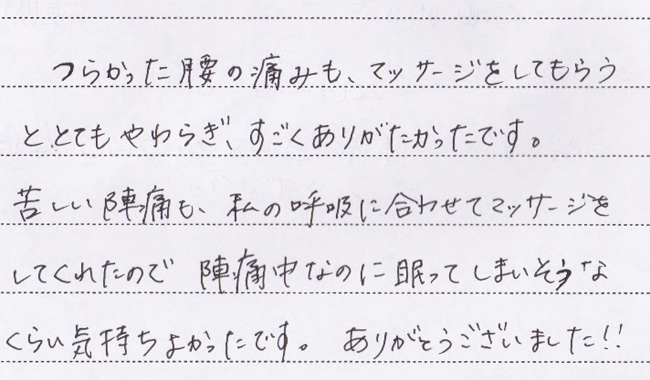 つらかった腰の痛みも、マッサージをしてもらう
ととてもやわらぎ、すごくありがたかったです。
苦しい陣痛も、私の呼吸に合わせてマッサージを
してくれたので 陣痛中なのに眠ってしまいそうな
くらい気持ちよかったです。 ありがとうございました!!